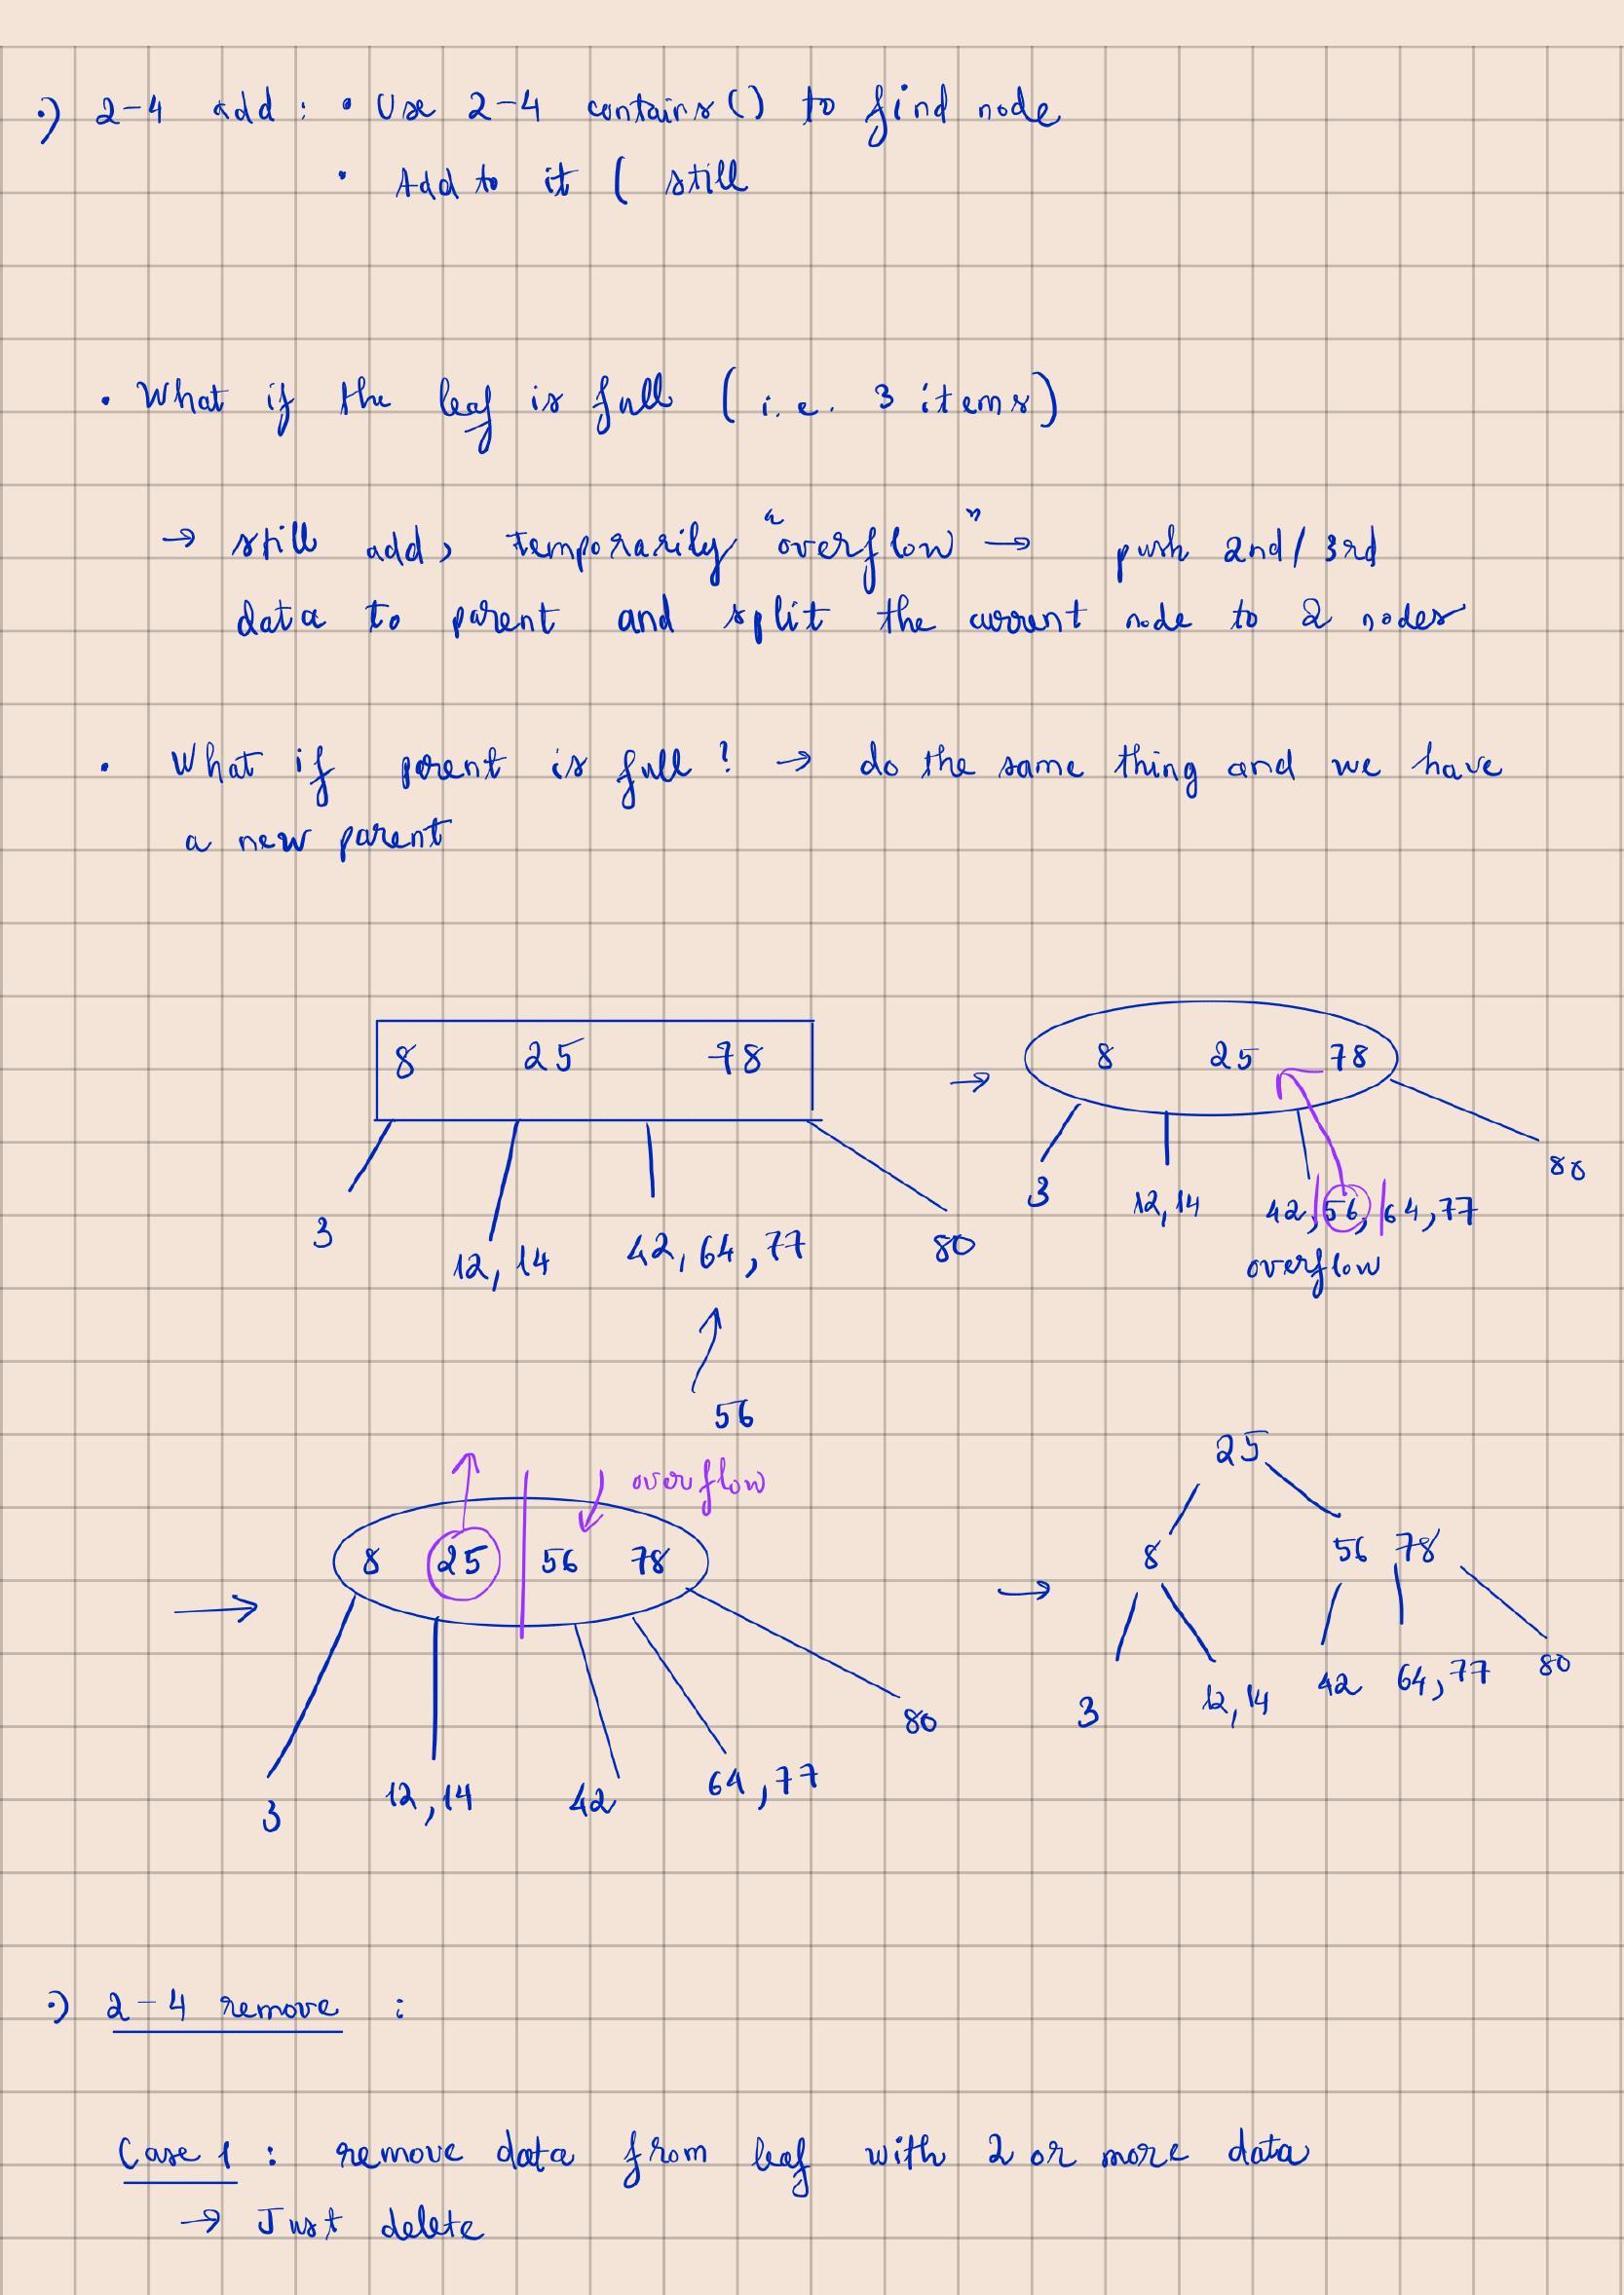 ·) 2-4 add : • Use 2-4 contains() to find node
• Add to it ( still
• What if the leaf is full ( i.e. 3 items)
→ still add, temporarily "overflow" → push 2nd/3rd
data to parent and split the current node to 2 nodes
• What if parent is full ? → do the same thing and we have
a new parent
8 25 78 → 8 25 78
3 12,14 42,64,77 80
3 12,14 42,56,64,77 80
overflow
56
overflow
→ 8 25 56 78
3 12,14 42 64,77 80
→ 25
8 56 78
3 12,14 42 64,77 80
·) 2-4 remove :
Case 1 : remove data from leaf with 2 or more data
→ Just delete